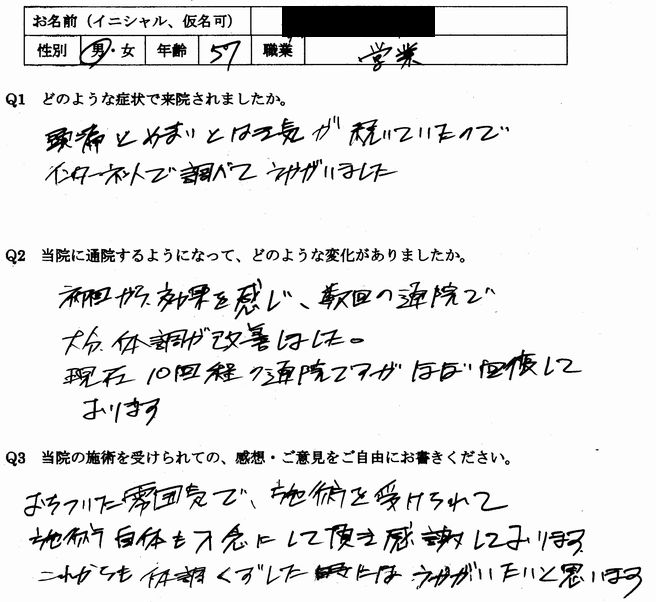 お名前（イニシャル、仮名可）
性別 男・女 年齢 57 職業 営業
Q1 どのような症状で来院されましたか。
頭痛とめまいとはき気が続いていたので
インターネットで調べてうかがいました
Q2 当院に通院するようになって、どのような変化がありましたか。
初回から効果を感じ、数回の通院で
大分、体調が改善しました。
現在10回程の通院ですがほぼ回復して
おります
Q3 当院の施術を受けられての、感想・ご意見をご自由にお書きください。
おちついた雰囲気で、施術を受けられて
施術自体も丁寧にして頂き感謝しております
これからも体調くずした時にはうかがいたいと思います